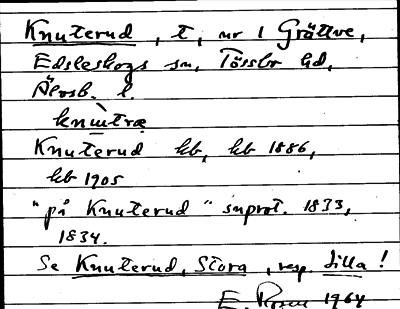 Knuterud, t, nr 1 Grättve,
Edsleskogs sn, Tössbo hd,
Älvsb. l.
knùtræ
Knuterud kb, kb 1886,
kb 1905
"på Knuterud" snprot. 1833,
1834.
Se Knuterud, Stora, resp. Lilla!
E. Rosen 1964